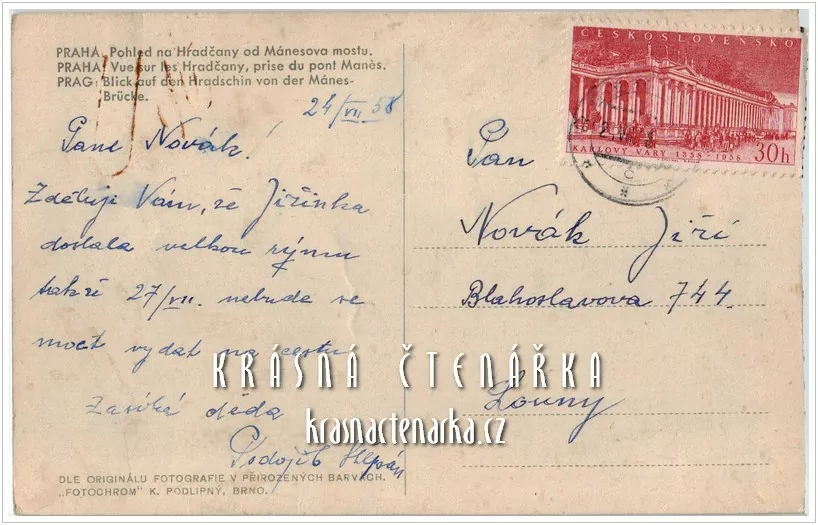 PRAHA: Pohled na Hradčany od Mánesova mostu.
PRAHA: Vue sur les Hradčany, prise du pont Manès.
PRAG: Blick auf den Hradschin von der Mánes-
Brücke.
24/VII 58
Pane Novák!
Zděluji Vám, že Jiřinka
dostala velkou rýmu
takže 27/VII. nebude se
moct vydat na cestu
děda
DLE ORIGINÁLU FOTOGRAFIE V PŘIROZENÝCH BARVÁCH.
„FOTOCHROM" K. PODLIPNÝ, BRNO.
ČESKOSLOVENSKO
KARLOVY VARY 1358-1958
30h
Pan
Novák Jiří
Blahoslavova 744.
Louny
KRÁSNÁ ČTENÁŘKA
krasnactenarka.cz